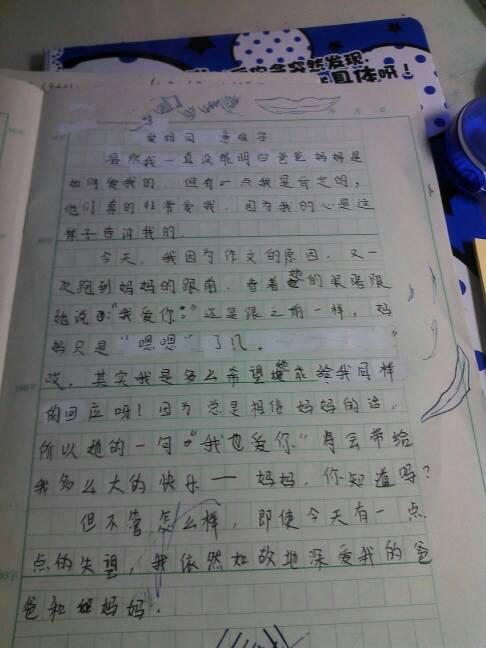 突然发现,
具体呀！
爱相同 意
虽然我一直没能明白爸爸妈妈是
如何爱我的，但有一点我是肯定的，
他们真的非常爱我，因为我的心是这
样子告诉我的。
今天，我因为作文的原因，又一
次跑到妈妈的跟前，看着她的眼睛跟
她说：“我爱你。”还是跟之前一样，妈
妈只是“嗯嗯”了几
哎，其实我是多么希望她能给我同样
的回应呀！因为总是相信妈妈的话，
所以她的一句“我也爱你”将会带给
我多么大的快乐——妈妈，你知道吗？
但不管怎么样，即使今天有一点
点的失望，我依然如故地深爱我的爸
爸和妈妈。